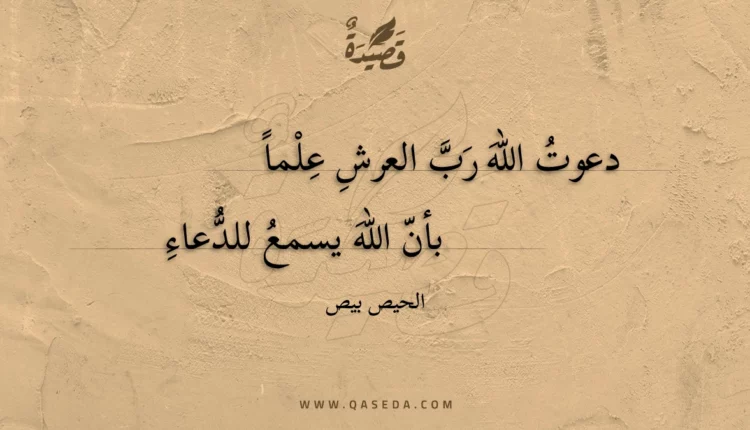 قَصِيْدَةٌ
دعوتُ اللهَ رَبَّ العرشِ عِلْماً
بأنّ اللهَ يسمعُ للدُّعاءِ
الحيص بيص
WWW.QASEDA.COM